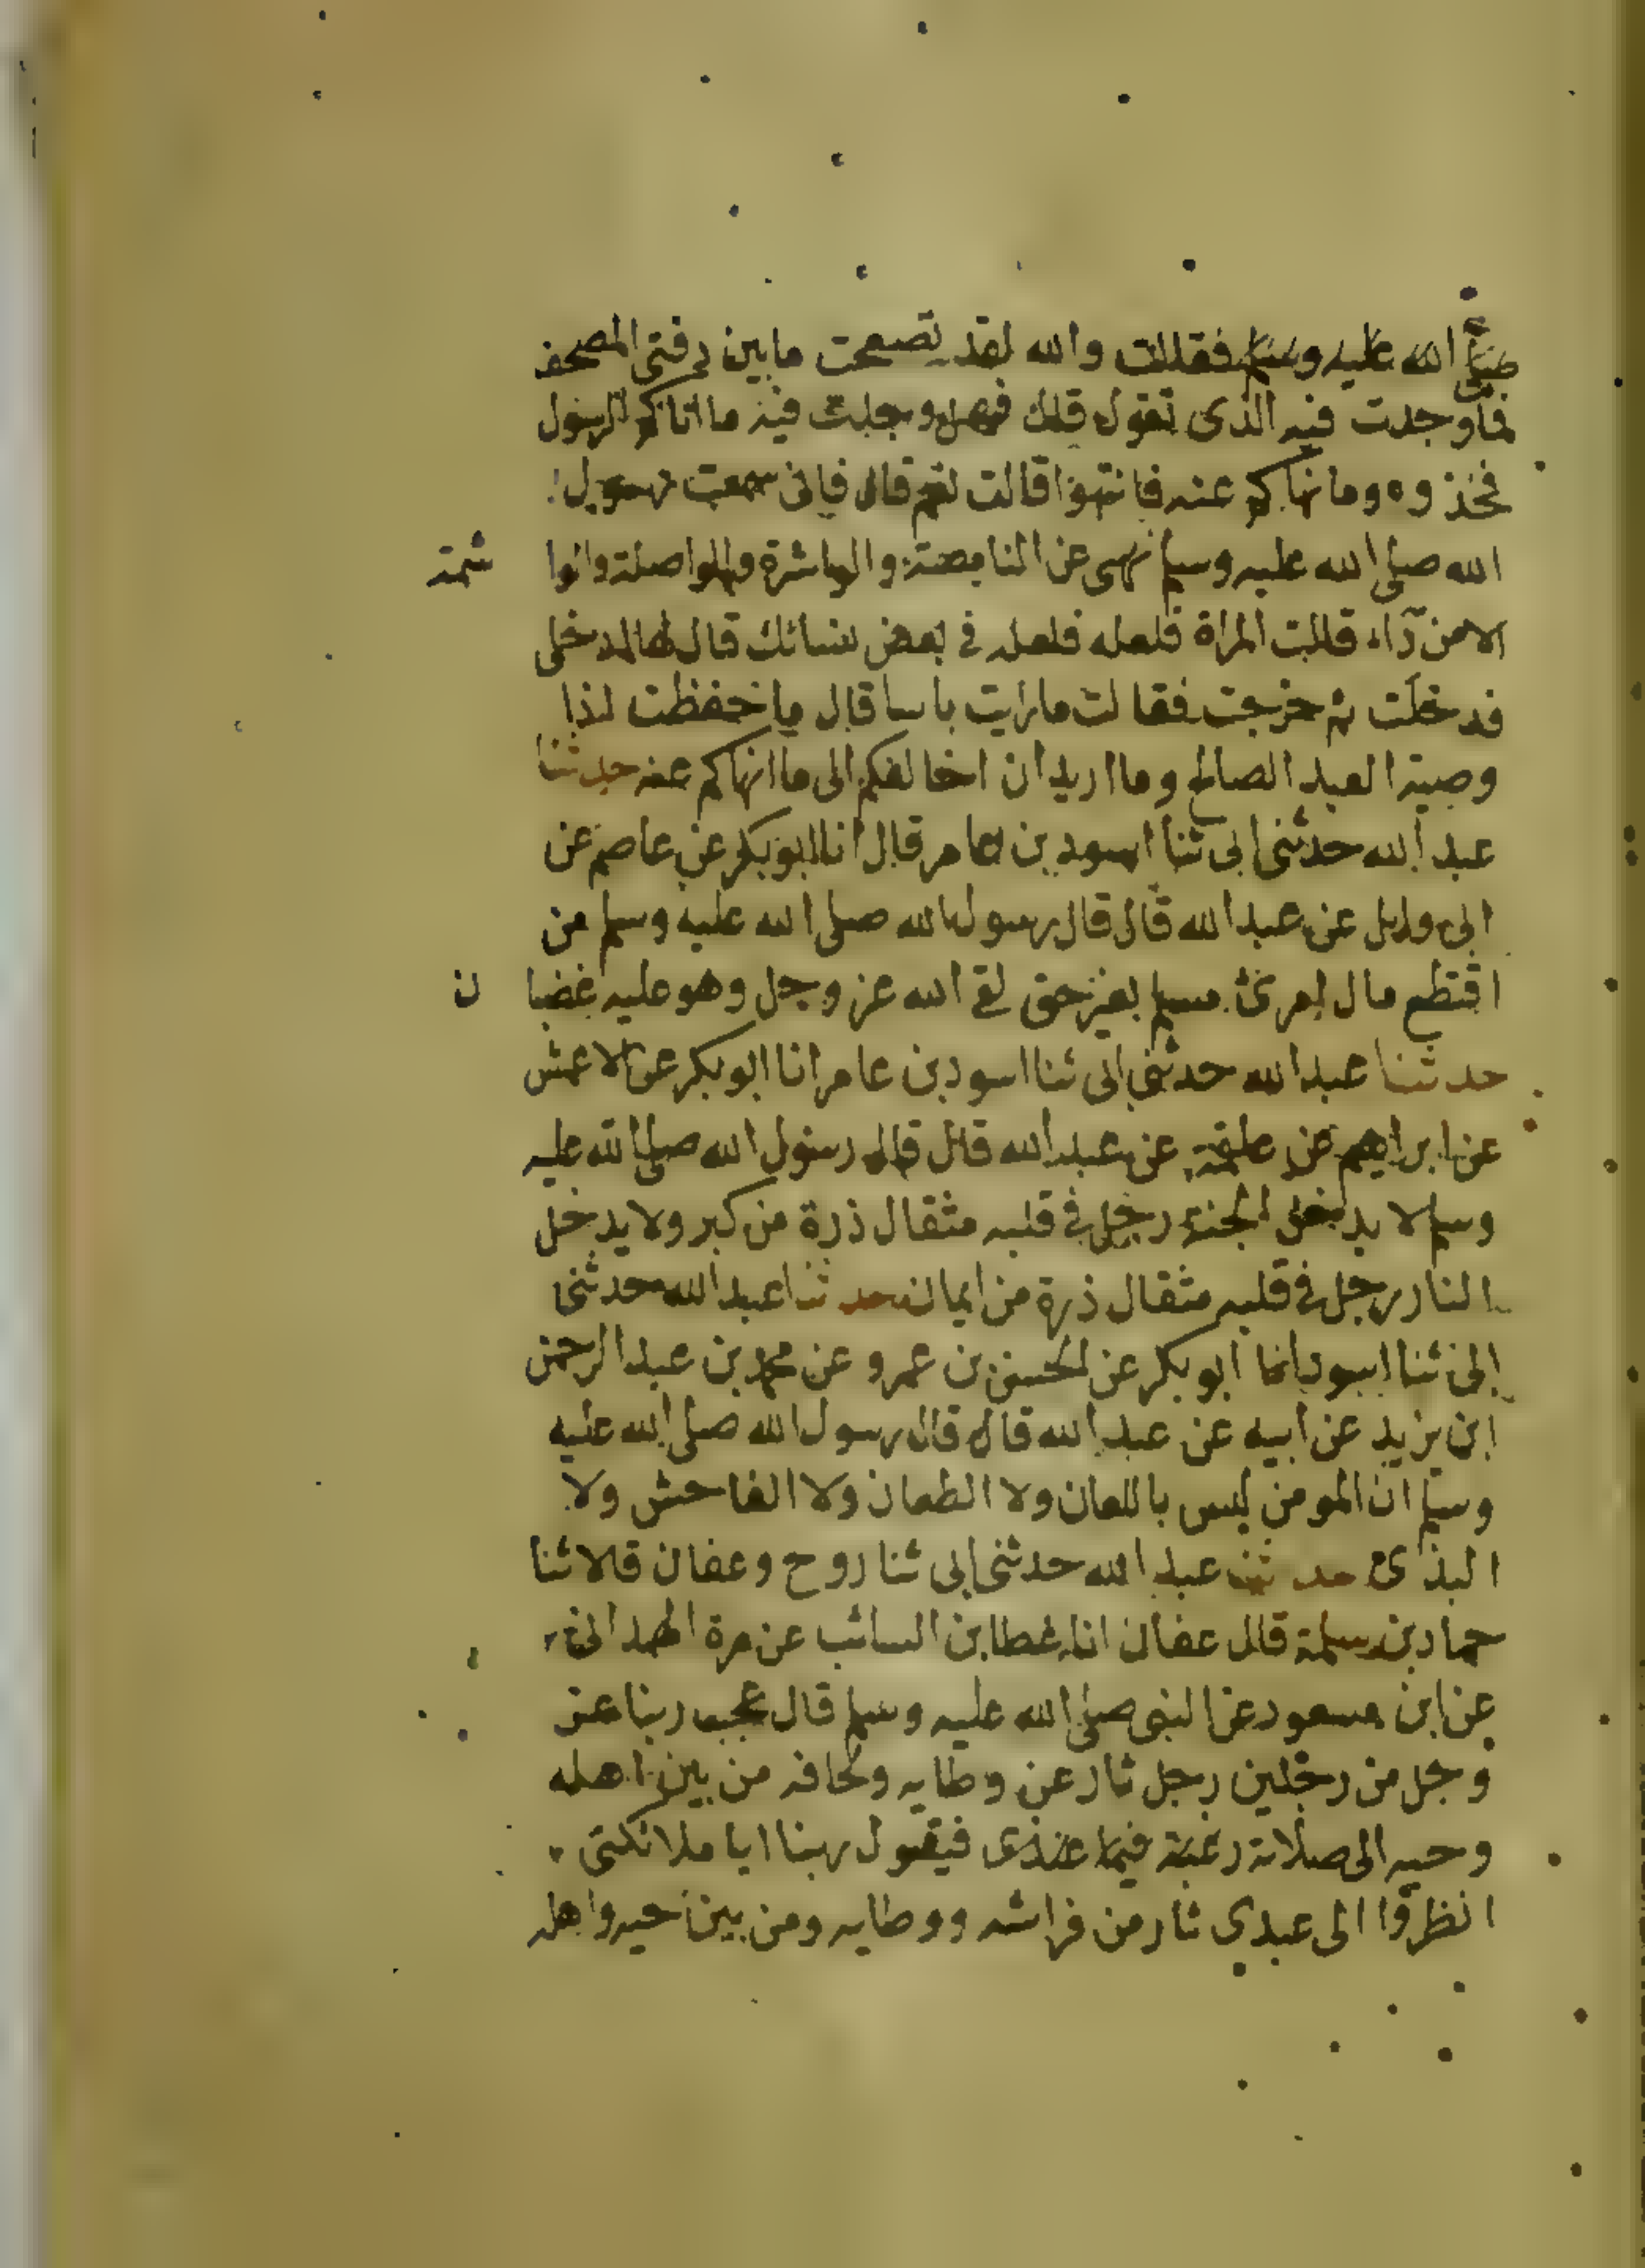 صلى الله عليه وسلم فقالت والله لقد تصفحت ما بين دفتى المصحف
فما وجدت فيه الذى تقول قال فهل وجدت فيه ما اتاكم الرسول
فخذوه وما نهاكم عنه فانتهوا قالت نعم قال فانى سمعت رسول
الله صلى الله عليه وسلم نهى عن النامصة والواشرة والواصلة والوا شمة
الا من دآء قالت المراة فلعله فلعله فى بعض نسائك قال لها ادخلى
فدخلت ثم خرجت فقالت ما رايت باسا قال ما حفظت اذا
وصية العبد الصالح وما اريد ان اخالفكم الى ما انهاكم عنه حدثنا
عبد الله حدثنى ابى ثنا اسود بن عامر قال انا ابو بكر عن عاصم عن
ابى وايل عن عبد الله قال قال رسول الله صلى الله عليه وسلم من
اقتطع مال امرئ مسلم بغير حق لقى الله عز وجل وهو عليه غضبا ن
حدثنا عبد الله حدثنى ابى ثنا اسود بن عامر انا ابو بكر عن الاعمش
عن ابراهيم عن علقمة عن عبد الله قال قال رسول الله صلى الله عليه
وسلم لا يدخل الجنة رجل فى قلبه مثقال ذرة من كبر ولا يدخل
النار رجل فى قلبه مثقال ذرة من ايمان حدثنا عبد الله حدثنى
ابى ثنا اسود انا ابو بكر عن الحسن بن عمرو عن محمد بن عبد الرحمن
ابن يزيد عن ابيه عن عبد الله قال قال رسول الله صلى الله عليه
وسلم ان المومن ليس باللعان ولا الطعان ولا الفاحش ولا
البذى حدثنا عبد الله حدثنى ابى ثنا روح وعفان قالا ثنا
حماد بن سلمة قال عفان انا عطا بن السائب عن مرة الهمدانى
عن ابن مسعود عن النبى صلى الله عليه وسلم قال عجب ربنا عز
وجل من رجلين رجل ثار عن وطايه ولحافه من بين اهله
وحيه الى صلاته رغبة فيما عندى فيقول ربنا ايا ملائكتى
انظروا الى عبدي ثار من فراشه ووطايه ومن بين حيه واهله